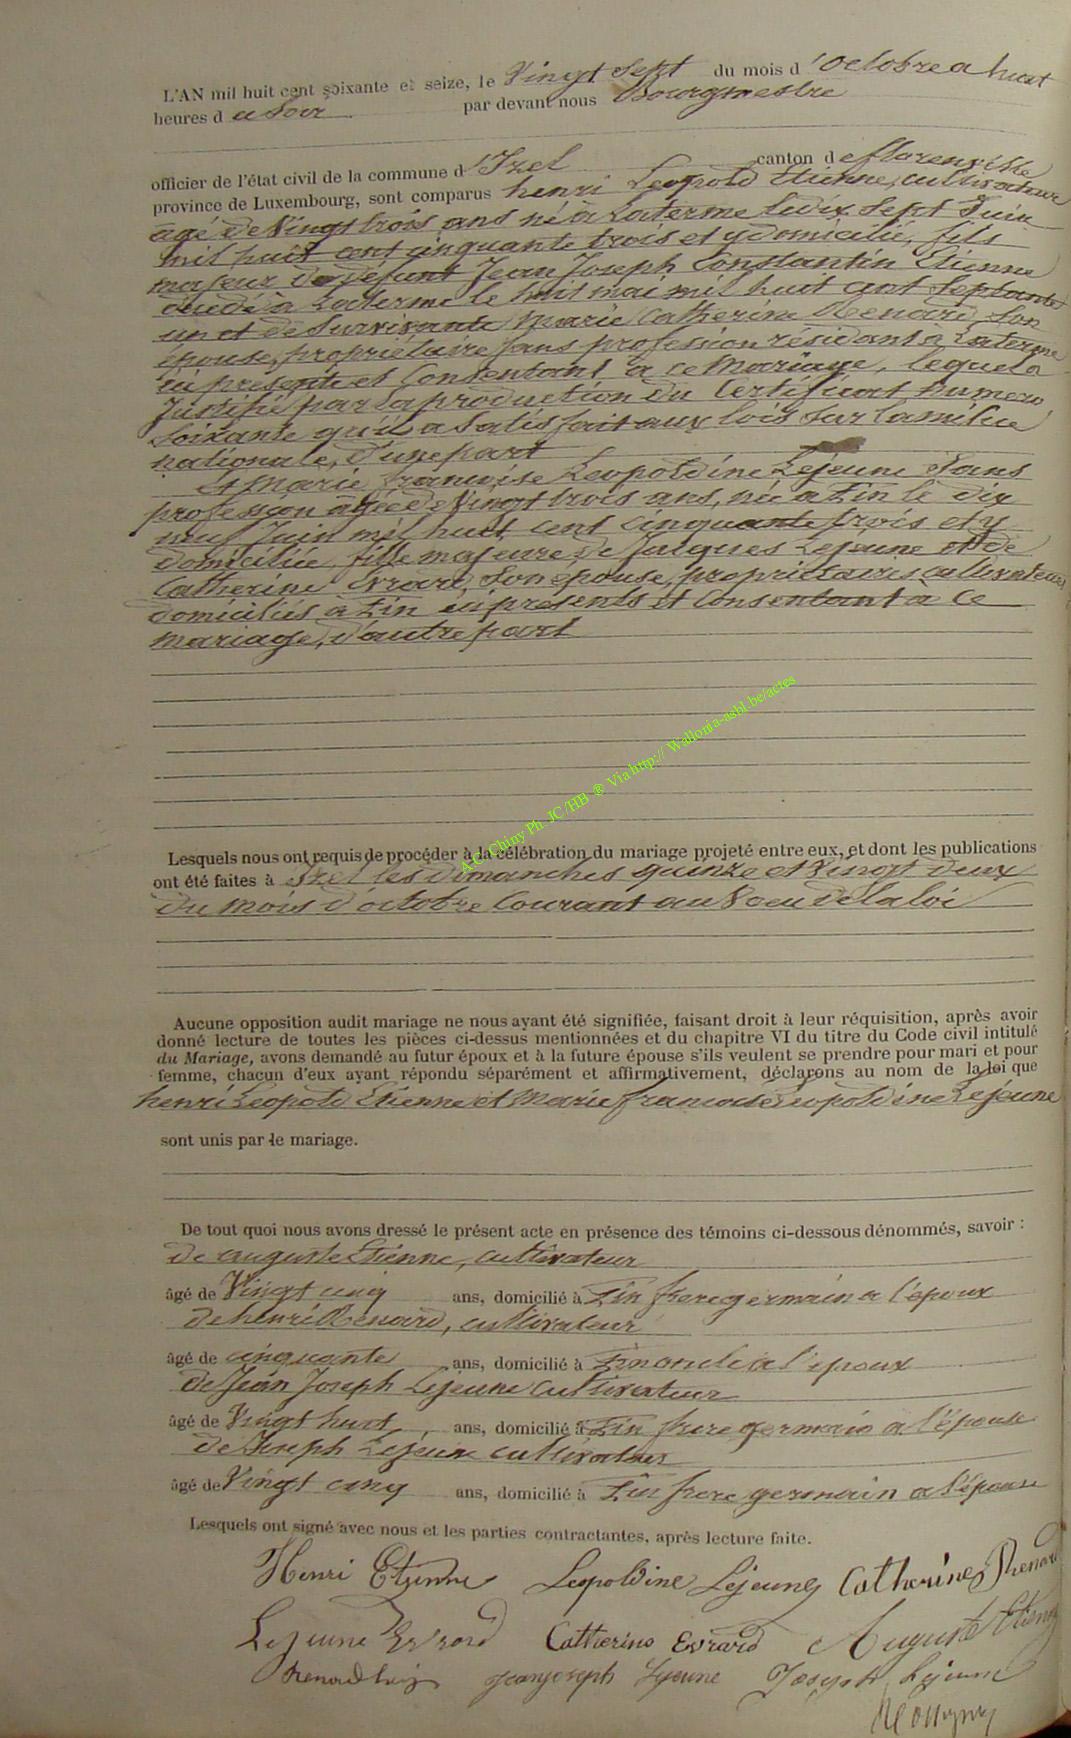 L'AN mil huit cent soixante et seize, le Vingt sept du mois d'octobre a huit
heures d u soir par devant nous Bourgmestre
officier de l'état civil de la commune d'Izel canton de florenville
province de Luxembourg, sont comparus henri Leopold Etienne, cultivateur
agé de Vingt trois ans né à Laterme le dix sept Juin
mil huit cent cinquante trois et y domicilié, fils
majeur de défunt Jean Joseph Constantin Etienne
décédé à Laterme le huit mai mil huit cent septante
un et de survivante Marie Catherine Renard, son
épouse, propriétaire sans profession résidant à Laterme
ici présente et Consentant à ce Mariage, lequel a
Justifié par la production du Certificat numero
soixante qu'il a Satisfait aux lois sur la milice
nationale, d'une part
Et Marie françoise Leopoldine Lejeune Sans
profession âgée de Vingt trois ans, née a Pin le dix
neuf Juin mil huit cent cinquante trois et y
domiciliée, fille majeure de Jacques Lejeune et de
Catherine Evrard, son épouse, propriétaires cultivateurs
domiciliés à Pin ici présents et Consentant à ce
mariage, d'autre part
A.C. Chiny Ph. JC/HB ® Via http:// Wallonia-asbl.be/actes
Lesquels nous ont requis de procéder à la célébration du mariage projeté entre eux, et dont les publications
ont été faites à Izel les dimanches quinze et Vingt deux
du mois d'octobre Courant au Voeu de la loi
Aucune opposition audit mariage ne nous ayant été signifiée, faisant droit à leur réquisition, après avoir
donné lecture de toutes les pièces ci-dessus mentionnées et du chapitre VI du titre du Code civil intitulé
du Mariage, avons demandé au futur époux et à la future épouse s'ils veulent se prendre pour mari et pour
femme, chacun d'eux ayant répondu séparément et affirmativement, déclarons au nom de la loi que
henri Leopold Etienne et Marie francoise Leopoldine Lejeune
sont unis par le mariage.
De tout quoi nous avons dressé le présent acte en présence des témoins ci-dessous dénommés, savoir :
de auguste Etienne, cultivateur
âgé de Vingt cinq ans, domicilié à Pin frere germain a l'époux
de henri Renard, cultivateur
âgé de cinquante ans, domicilié à Pin oncle a l'epoux
de Jean Joseph Lejeune cultivateur
âgé de Vingt huit ans, domicilié à Pin frere germain a l'épouse
de Joseph Lejeune cultivateur
âgé de Vingt cinq ans, domicilié à Pin frere germain a l'épouse
Lesquels ont signé avec nous et les parties contractantes, après lecture faite.
Henri Etienne Leopoldine Lejeune Catherine Renard
Lejeune Evrard Catherine Evrard Auguste Etienne
Renard Jeanjoseph Lejeune Joseph Lejeune